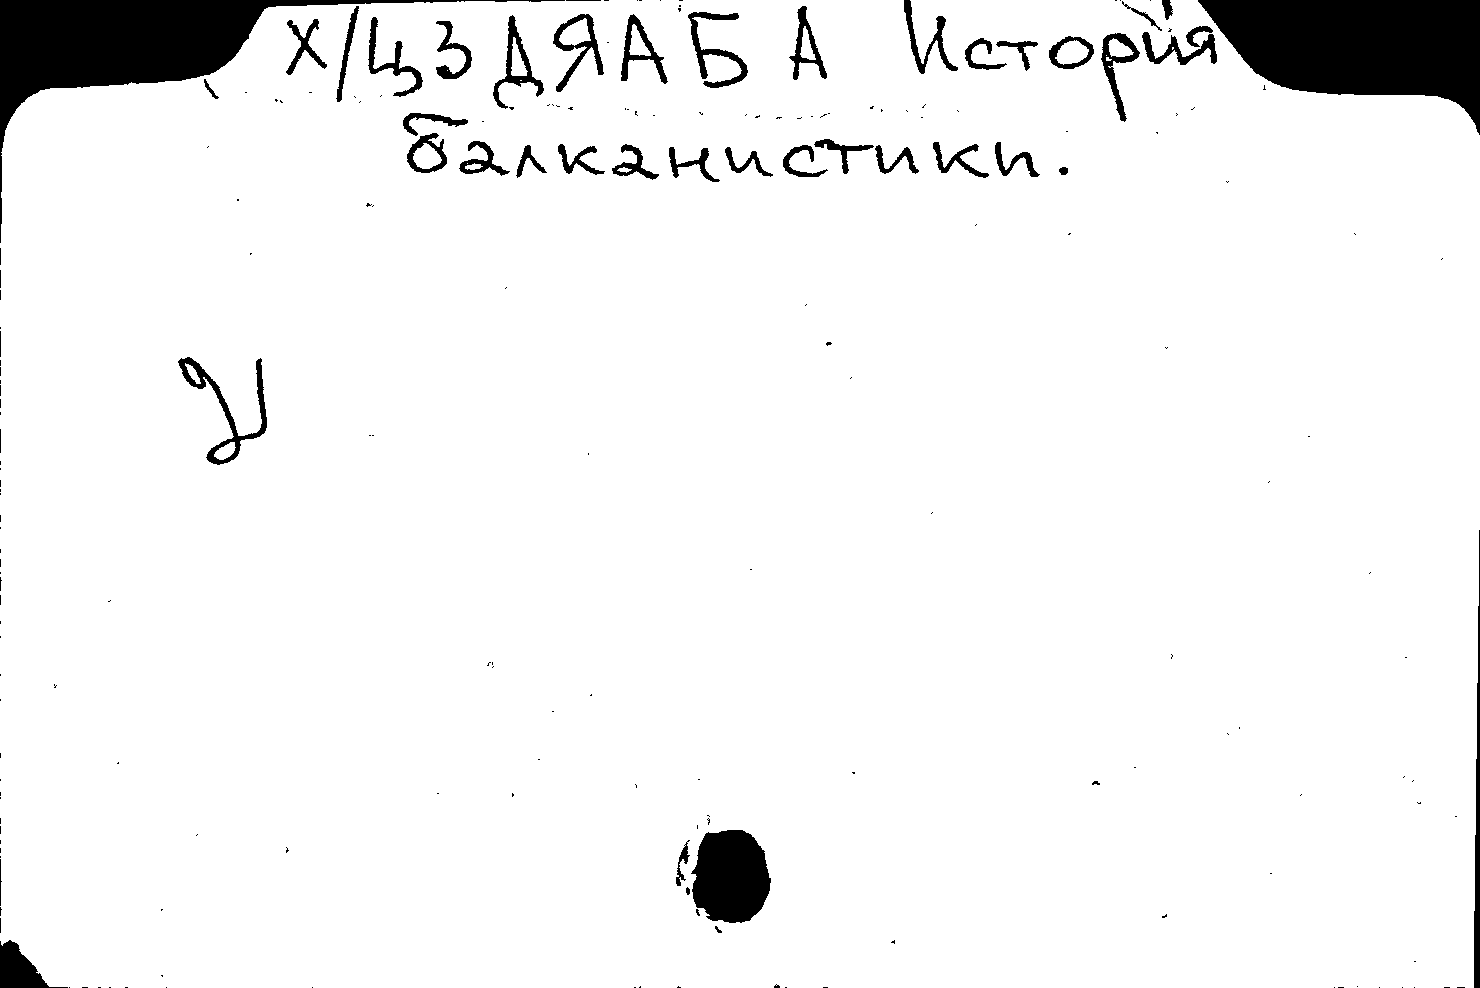 Х/Ц3ДЯАБ А История
балканистики.